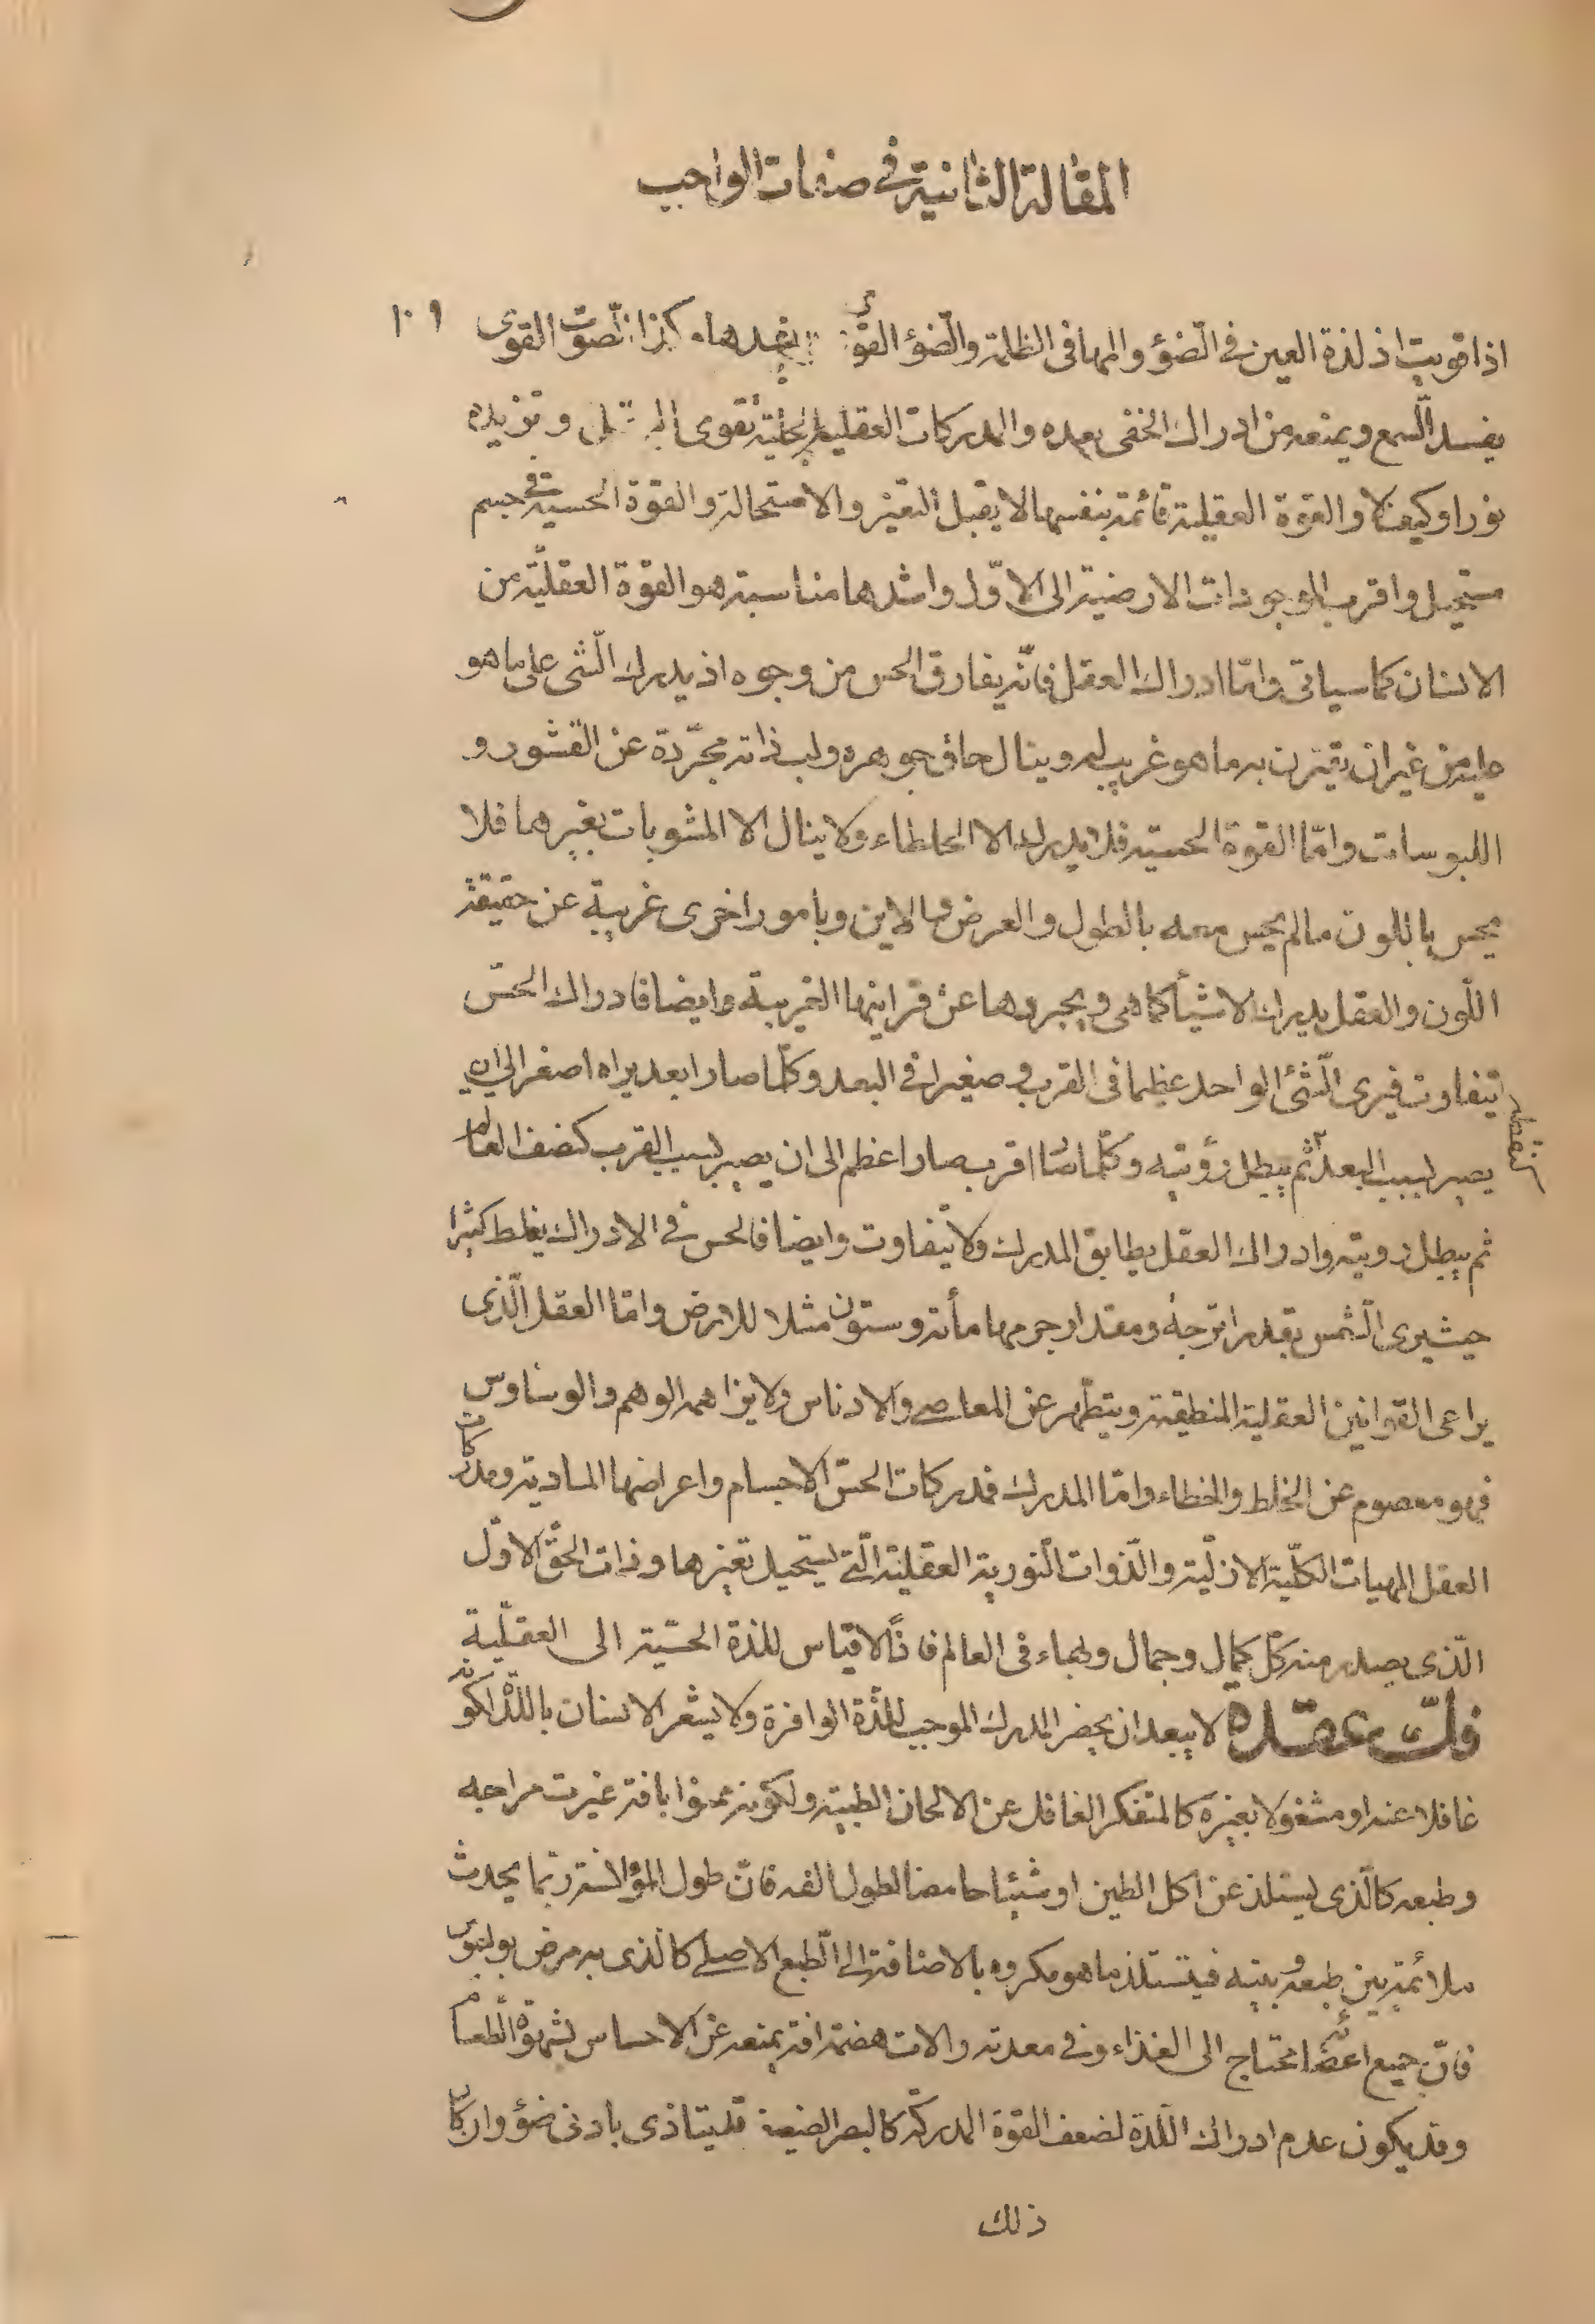 المقالة الثانية في صفات الواجب
١٠٩
اذا قويت اذ لذة العين في الضوء والمها في الظلمة والضوء القوى يفسدها وكذا الصوت القوى
يفسد السمع ويمنعه من ادراك الخفى بعده والمدركات العقلية الجلية تقوى العقل وتزيده
نورا وكيف لا والقوة العقلية قائمة بنفسها لا يقبل التغير والاستحالة والقوة الحسية في جسم
مستحيل واقرب الموجودات الارضية الى الاول واشدها مناسبة هو القوة العقلية من
الانسان كما سياتى واما ادراك العقل فانه يفارق الحس من وجوه اذ يدرك الشى على ما هو
عليه من غير ان يقترن به ما هو غريب له وينال حاق جوهره ولب ذاته مجردة عن القشور و
اللبوسات واما القوة الحسية فلا يدرك الا الخلطاء ولا ينال الا المشوبات بغيرهما فلا
يحس باللون مالم يحس معه بالطول والعرض والاين وبامور اخرى غريبة عن حقيقة
اللون والعقل يدرك الاشيأ كما هى ويجردها عن قراينها الغريبة وايضا فادراك الحس
يتفاوت فيرى الشئ الواحد عظيما في القرب وصغيرا في البعد وكلما صار ابعد يراه اصغر الى ان
يصير لسبب البعد كنقطة ثم يبطل رؤيته وكلما اقرب صار اعظم الى ان يصير لسبب القرب كنصف العالم
ثم يبطل رويته وادراك العقل يطابق المدرك ولا يتفاوت وايضا فالحس في الادراك يغلط كثيرا
حيث يرى الشمس بقدر اترجة ومقدار جرمها مأة وستون مثلا للارض واما العقل الذى
يراعى القوانين العقلية المنطقية ويتطهر عن المعاصى والادناس ولا يزاحمه الوهم والوساوس
فهو معصوم عن الغلط والخطاء واما المدرك فمدركات الحس الاجسام واعراضها المادية ومدركات
العقل المهيات الكلية الازلية والذوات النورية العقلية التى يستحيل تغيرها وذات الحق الاول
الذى يصدر منه كل كمال وجمال وبهاء فى العالم فاذا لا قياس للذة الحسية الى العقلية
لا يبعد ان يحضر المدرك الموجب للذة الوافرة ولا يشعر الانسان باللذة لكونه
غافلا عنه او مشغولا بغيره كالمتفكر الغافل عن الالحان الطيبة ولكونه ممنوا بافة غيرت مزاجه
وطبعه كالذى يستلذ عن اكل الطين او شيئا حامضا لطول الفه فان طول المؤالنسة ربما يحدث
ملائمة بين طبعه وبينه فيستلذ ما هو مكروه بالاضافة الى الطبع الاصلى كالذى به مرض بوليموس
فان جميع اعضائه محتاج الى الغذاء وفي معدته والات هضمه افة يمنعه عن الاحساس بشهوة الطعام
وقد يكون عدم ادراك اللذة لضعف القوة المدركة كالبصر الضعيف قد يتاذى بادنى ضوء وان كان
ذلك